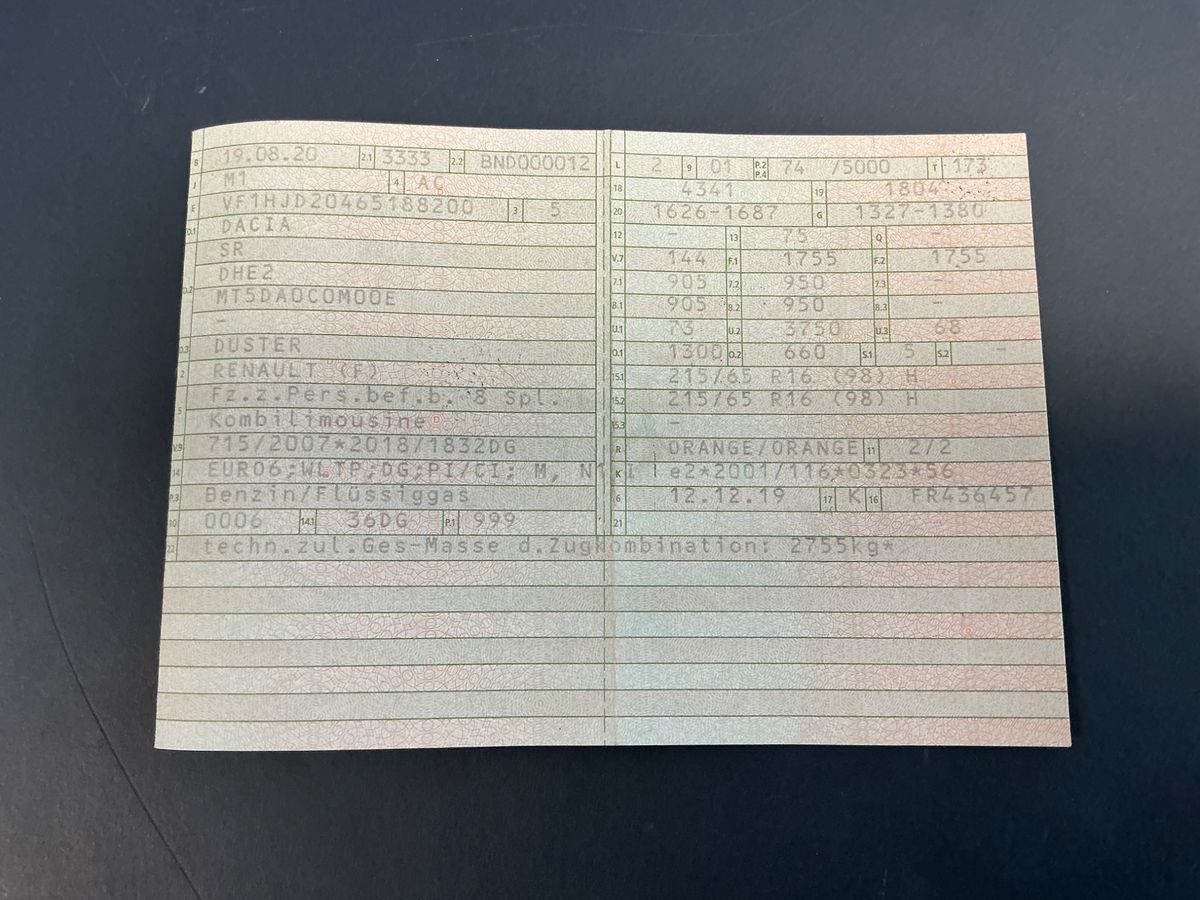 B 19.08.20 2.1 3333 2.2 BND000012
J M1 4 AC
E VF1HJD20465188200 3 5
D.1 DACIA
SR
DHE2
D.2 MT5DA0C0M00E
-
D.3 DUSTER
2 RENAULT (F)
Fz.z.Pers.bef.b. 8 Spl.
5 Kombilimousine
V.9 715/2007*2018/1832DG
14 EURO6;WLTP;DG;PI/CI; M, N1 I
P.3 Benzin/Flüssiggas
10 0006 14.1 36DG P.1 999
L 2 9 01 P.2 P.4 74 /5000 T 173
18 4341 19 1804
20 1626-1687 G 1327-1380
12 - 13 75 Q -
V.7 144 F.1 1755 F.2 1755
7.1 905 7.2 950 7.3 -
8.1 905 8.2 950 8.3 -
U.1 73 U.2 3750 U.3 68
O.1 1300 O.2 660 S.1 5 S.2 -
15.1 215/65 R16 (98) H
15.2 215/65 R16 (98) H
15.3 -
R ORANGE/ORANGE 11 2/2
K e2*2001/116*0323*56
6 12.12.19 17 K 16 FR436457
21
22 techn.zul.Ges-Masse d.Zugkombination: 2755kg*